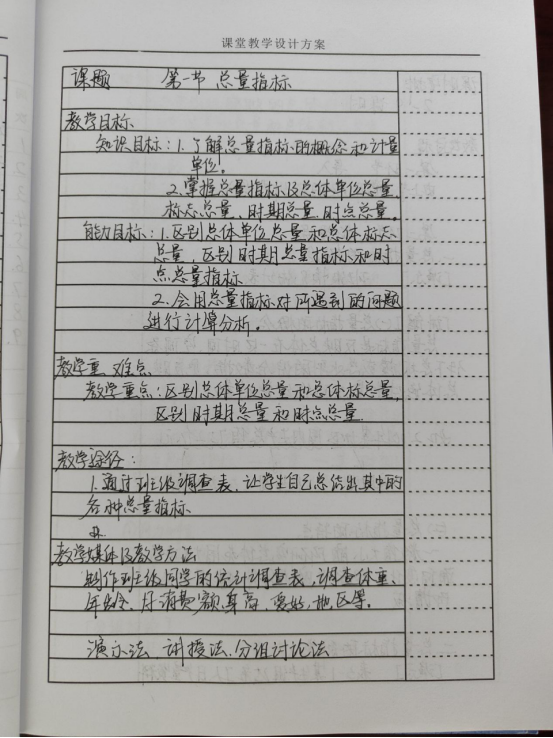 课堂教学设计方案
课题 第一节 总量指标
教学目标
知识目标:1.了解总量指标的概念和计量
单位。
2.掌握总量指标及总体单位总量,
标志总量,时期总量.时点总量。
能力目标:1.区别总体单位总量和总体标志
总量,区别时期总量指标和时
点总量指标
2.会用总量指标对所遇到的问题
进行计算分析。
教学重 难点
教学重点:区别总体单位总量和总体标总量,
区别时期总量和时点总量
教学途经:
1.通过班级调查表,让学生自己总结出其中的
各种总量指标
教学媒体及教学方法
制作班级同学的统计调查表,调查体重、
年龄、月消费额,身高,爱好,地区等。
演示法 讲授法.分组讨论法